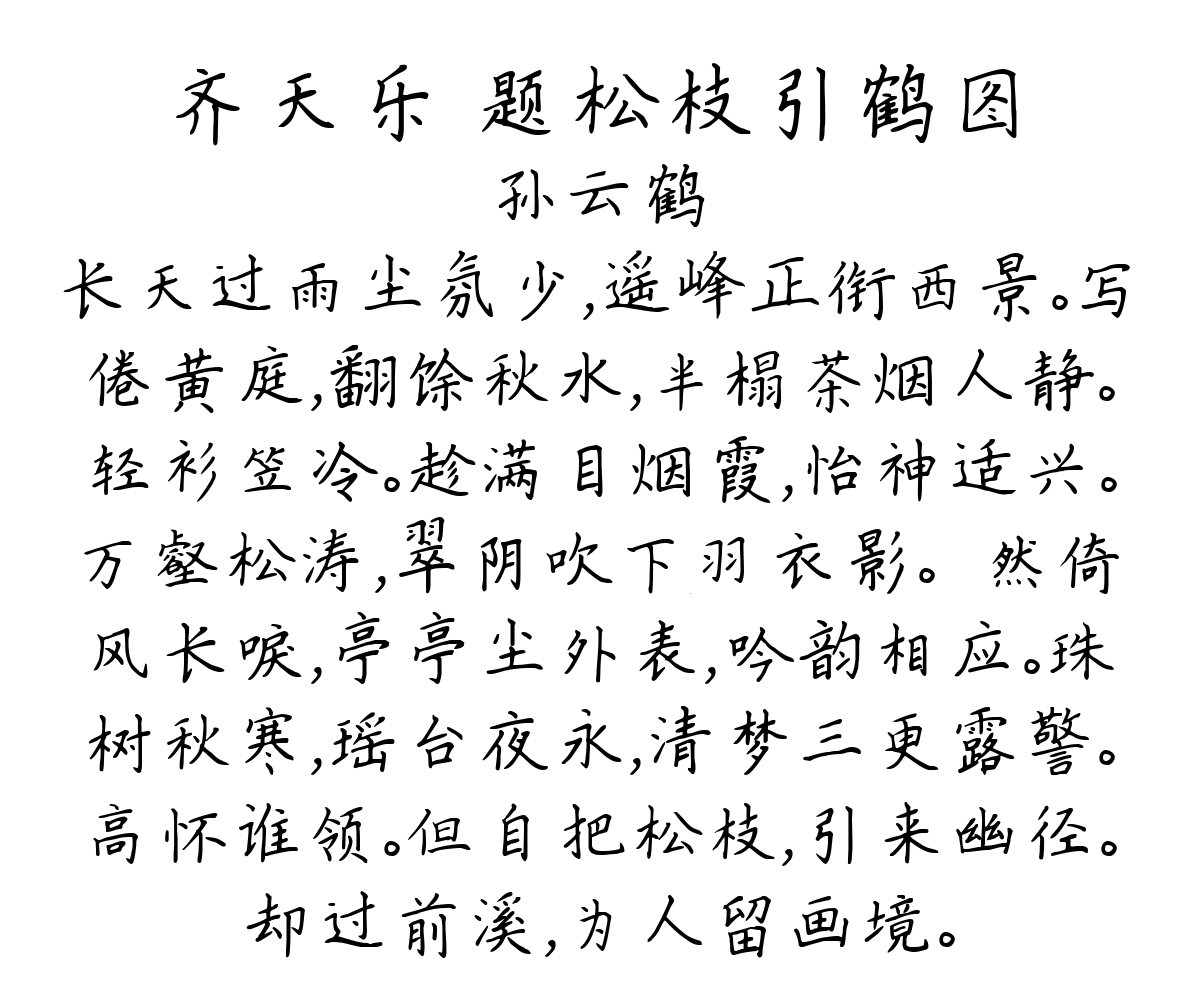 齐天乐 题松枝引鹤图
孙云鹤
长天过雨尘氛少,遥峰正衔西景。写
倦黄庭,翻馀秋水,半榻茶烟人静。
轻衫笠冷。趁满目烟霞,怡神适兴。
万壑松涛,翠阴吹下羽衣影。 然倚
风长唳,亭亭尘外表,吟韵相应。珠
树秋寒,瑶台夜永,清梦三更露警。
高怀谁领。但自把松枝,引来幽径。
却过前溪,为人留画境。